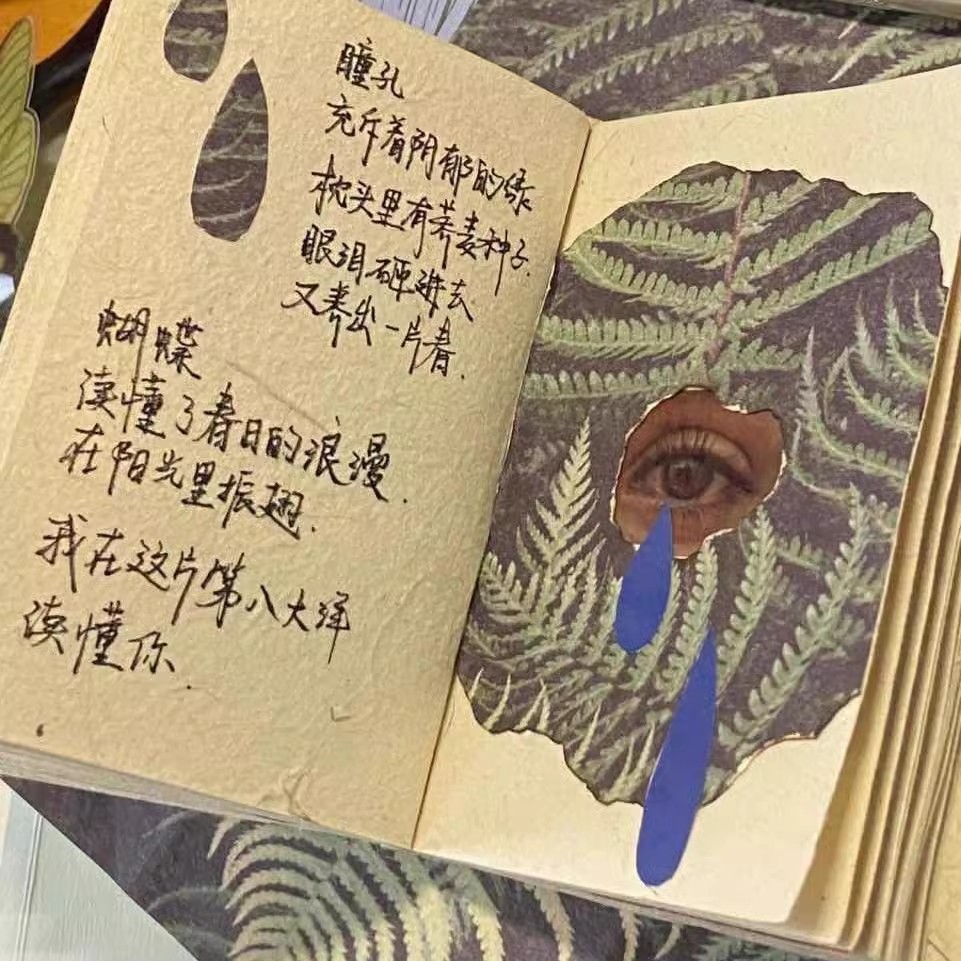 瞳孔
充斥着阴郁的绿
枕头里有荞麦种子.
眼泪砸进去
又养出一片春.
蝴蝶
读懂了春日的浪漫.
在阳光里振翅.
我在这片第八大洋
读懂你.